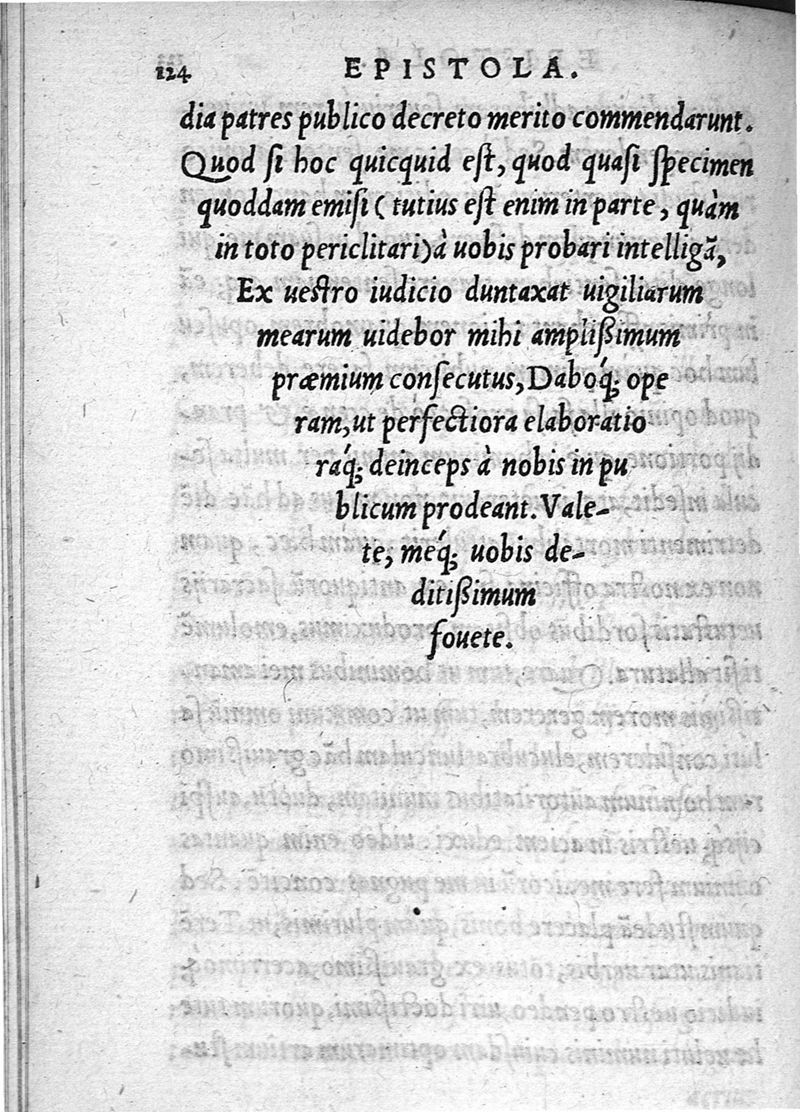 124 EPISTOLA.
dia patres publico decreto merito commendarunt.
Quod ſi hoc quicquid eſt, quod quaſi ſpecimen
quoddam emiſi ( tutius eſt enim in parte, quàm
in toto periclitari) à uobis probari intelligā,
Ex ueſtro iudicio duntaxat uigiliarum
mearum uidebor mihi ampliſſimum
præmium conſecutus, Daboq́; ope
ram, ut perfectiora elaboratio
raq́; deinceps à nobis in pu
blicum prodeant. Vale-
te, meq́; uobis de-
ditiſſimum
fouete.